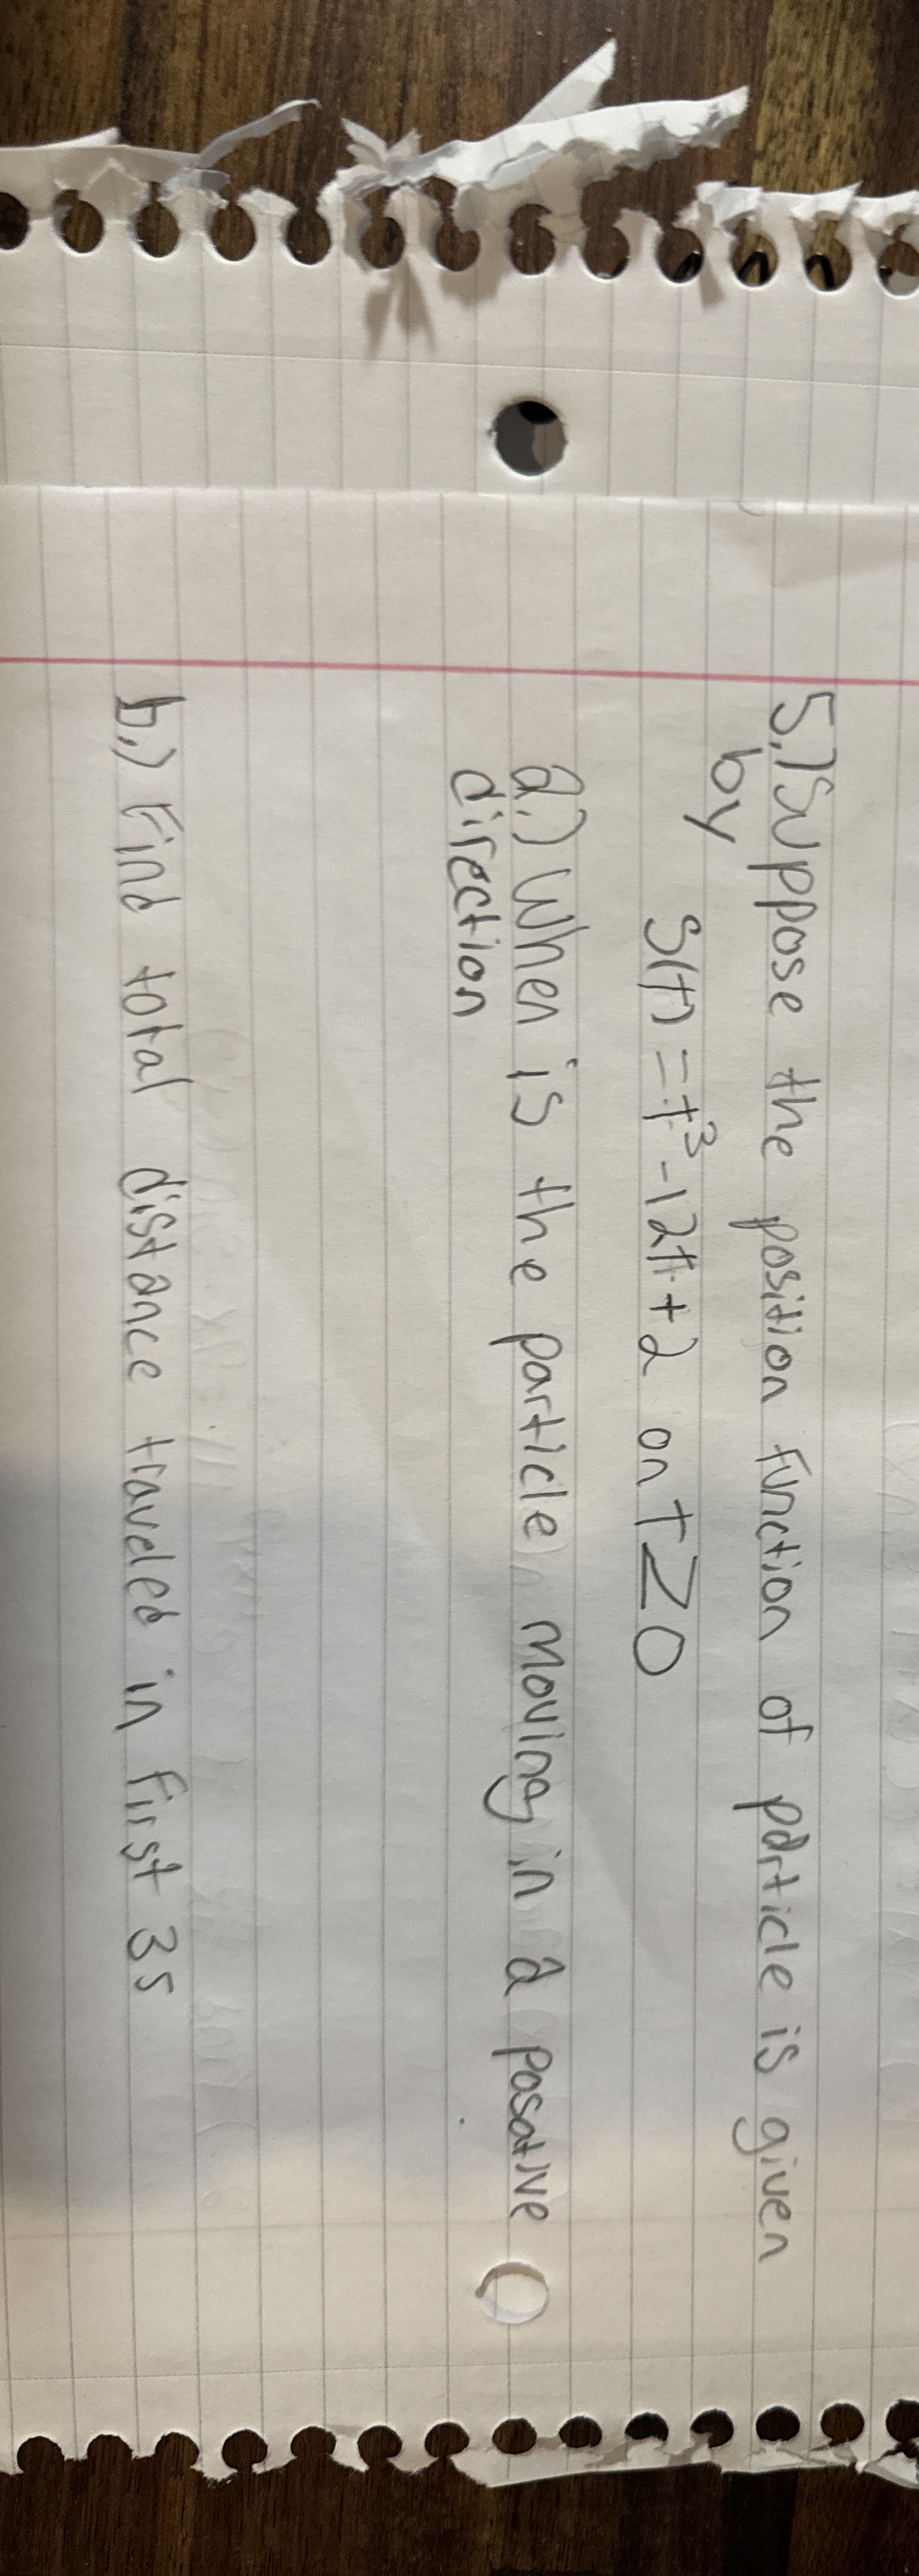 5.) Suppose the position function of particle is given
by
S(t) = t³ - 12t + 2 on t ≥ 0
a.) When is the particle moving in a posative
direction
b.) Find total distance traveled in first 3s